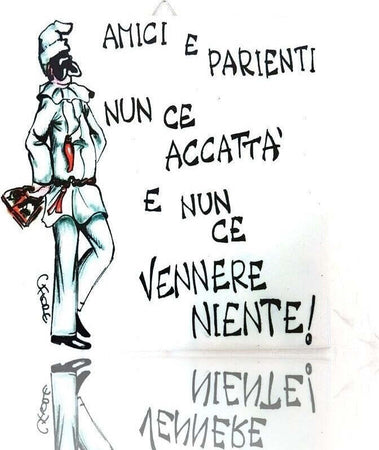 AMICI E
PARIENTI
NUN CE
ACCATTÀ
E NUN
CE
VENNERE
NIENTE!